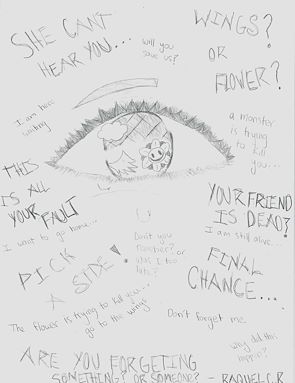 SHE CANT
HEAR YOU...
will you
save us?
WINGS?
OR
FLOWER?
I am here
waiting
a monster
is trying
to kill
you...
THIS
IS ALL
YOUR FAULT
I want to go home...
YOUR FRIEND
IS DEAD?
I am still alive...
PICK
A SIDE
Don't you
remember? or
was I too
late?
FINAL
CHANCE...
The flower is trying to kill you...
go to the wings
Don't forget me
why did this
happen?
ARE YOU FORGETING
SOMETHING? OR SOMEONE? - RAQUEL C.R